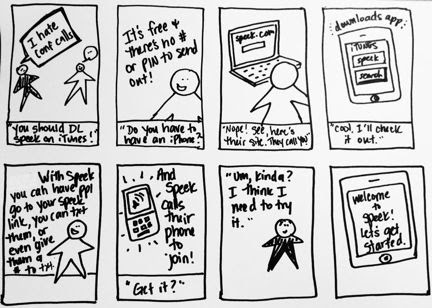 I hate
conf calls
"You should DL
speek on iTunes!"
It's free &
there's no #
or PIN to send
out!
"Do you have to
have an iPhone?"
speek.com
"Nope! See, here's
their site. They call you!"
*downloads app*
iTUNES
speek
search
"Cool. I'll check
it out."
With Speek
you can have ppl
go to your speek
link, you can txt
them, or
even give
them a
# to txt.
And
Speek
calls
their
phone to
join!
"Get it?"
"Um, kinda?
I think I
need to try
it."
welcome
to
Speek!
let's get
started.